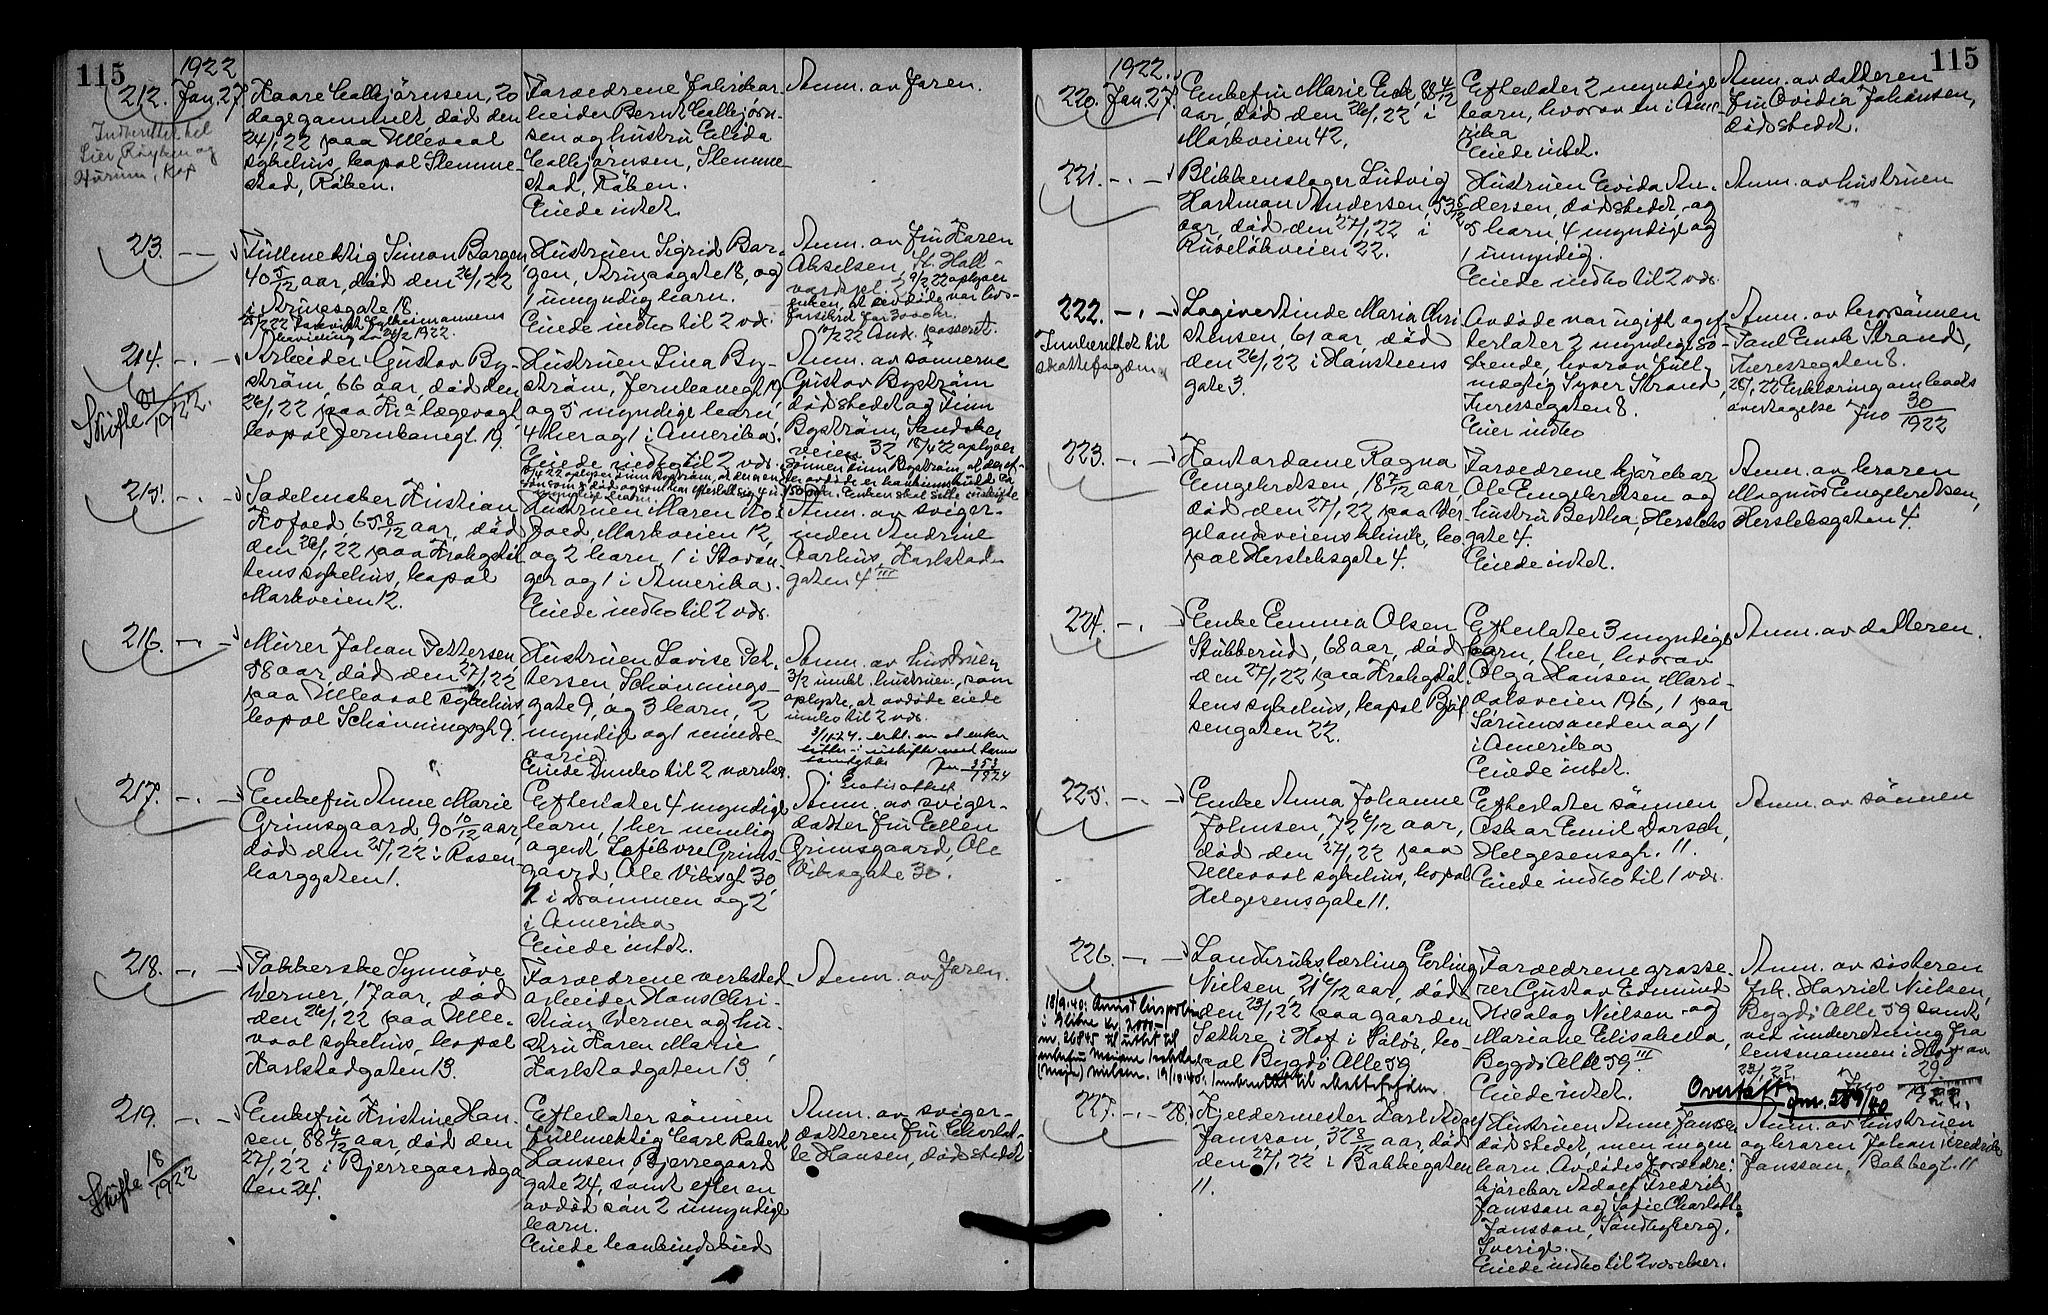 115
1922
212. Jan. 27.
Kaare Callbjörnsen, 20
dage gammelt død den
24/1 22 paa Ullevaal
sykehus, bopæl Slemme-
stad, Röken.
Forældrene Fabrikar-
beider Bernt Callbjörn-
sen og hustru
Callbjörnsen, Slemme-
stad, Röken.
Eiede intet.
Anm. av faren.
Indberettet til
Lier, Röyken og
Hurum,
213. — —
Fuldmektig Simon Borgen
40 5/12 aar, død den 26/1 22
i gate 18.
Hustruen Sigrid Bor-
gen, gate 18, og
1 umyndig barn.
Eiede indbo til 2 vær.
Anm. av fru Karen
Akselsen, St. Hall-
vardspl. 2 9/2 22 oplyser
enken, at avdöde var livs-
forsikret for 3000 kr.
214. — —
Arbeider Gustav By-
ström, 66 aar, død den
26/1 22 paa Kra lægevagt
bopæl Jernbanegt. 19.
Hustruen Lina By-
ström, Jernbanegt. 19,
og 5 myndige barn,
4 her og 1 i Amerika.
Eiede indbo til 2 vær.
Anm. av sönnerne
Gustav Byström
dödsstedet og Finn
Byström, Sandaker
veien 32 18/4 22 oplyser
sönnen Finn Byström, at den af-
Skifte 1922.
215. — —
Sadelmaker Kristian
Kofoed, 65 8/12 aar, död
den 26/1 22 paa Krohgstöt-
tens sykehus, bopæl
Markveien 12.
Hustruen Maren Ko-
foed, Markveien 12,
og 2 barn, 1 i Stavan-
ger og 1 i Amerika.
Eiede indbo til 2 vær.
Anm. av sviger-
inden Andrine
Aarhus, Karlstad-
gaten 4 III
216. — —
Murer Johan Pettersen
58 aar, død den 27/1 22
paa Ullevaal sykehus,
bopæl Schönningsgt. 9.
Hustruen Lovise Pet-
tersen, Schönnings-
gate 9, og 3 barn, 2
myndige og 1 mindre-
aarig
Eiede indbo til 2 værelser.
Anm. av hustruen
3/2 hustruen, som
oplyste, at avdöde eiede
indbo til 2 vær.
3/11 24. erkl. om at enken
sitter i uskifte med barns
samtykke Jno 353/1924
217. — —
Enkefru Anne Marie
Grimsgaard, 90 10/12 aar,
död den 25/1 22 i Rosen-
borggaten 1.
Efterlater 4 myndige
barn, 1 her nemlig
agent Lefebvre Grims-
gaard, Ole Vibsgt. 30,
1 i Drammen og 2
i Amerika
Eiede intet.
Anm. av sviger-
datter fru Ellen
Grimsgaard, Ole
Vibsgate 30.
218. — —
Pakkerske Synnöve
Werner, 17 aar, död
den 26/1 22 paa Ulle-
vaal sykehus, bopæl
Karlstadgaten 13.
Forældrene verksted-
arbeider Hans Chri-
stian Werner og hu-
stru Karen Marie,
Karlstadgaten 13.
Anm. av faren.
219. — —
Enkefru Kristine Han-
sen, 88 4/12 aar, död den
27/1 22 i Bjerregaardsga-
ten 24.
Efterlater sönnen
fuldmektig Carl Robert
Hansen, Bjerregaards
gate 24, samt efter en
avdöd sön 2 umyndige
barn.
Eiede
Anm. av sviger-
datteren fru
Hansen, dödsstedet
Skifte 18/1922
115
1922.
220. Jan. 27.
Enkefru Marie Eek, 88 4/12
aar, död den 26/1 22 i
Markveien 42.
Efterlater 2 myndige
barn, hvorav en i Ame-
rika
Eiede intet.
Anm. av datteren
fru Ovidia Johansen,
dödsstedet.
221. — —
Blikkenslager Ludvig
Hartman Andersen, 53
aar, död den 27/1 22 i
Ruselökveien 22.
Hustruen An-
dersen, dödsstedet, og
5 barn 4 myndige og
1 umyndig.
Eiede indbo til 2 vær.
Anm. av hustruen
222. — —
Maria Chri
stensen, 61 aar, död
den 26/1 22 i Hansteens
gate 3.
Avdöde var ugift og ef-
terlater 2 myndige sö-
skende, hvorav full-
mægtig Syver Strand,
Theresesgaten 8.
Eier indbo
Anm. av brorsönnen
Paul Strand,
Theresesgaten 8.
28/1 22 Erklæring om boets
overtagelse Jno 30/1922
Innberettet til
skattefogden
223. — —
Kontordame Ragna
Engebretsen, 18 7/12 aar,
död den 27/1 22 paa Wer-
gelandsveiens klinik, bo-
pæl Herslebsgate 4.
Forældrene kjörekar
Ole Engebretsen og
hustru Bertha, Herslebs
gate 4.
Eiede intet.
Anm. av broren
Magnus Engebretsen,
Herslebsgaten 4.
224. — —
Enke Emma Olsen
Stubberud, 68 aar, död
den 27/1 22 paa Krohgstöt-
tens sykehus, bopæl
sengaten 22.
Efterlater 3 myndige
barn, 1 her, hvorav
Olga Hansen Mari-
dalsveien 196, 1 paa
Sörumsanden og 1
i Amerika
Eiede intet.
Anm. av datteren.
225. — —
Enke Anna Johanne
Johnsen, 72 6/12 aar,
död den 27/1 22 paa
Ullevaal sykehus, bopæl
Helgesensgate 11.
Efterlater sönnen
Oskar Emil Dorsch,
Helgesensgt. 11.
Eiede indbo til 1 vær.
Anm. av sönnen
226. — —
Landbrukslærling Erling
Nielsen, 21 6/12 aar, död
den 23/1 22 paa gaarden
Sætre i Hof i Solör, bo-
pæl Bygdö Alle 59
Forældrene grosse-
rer Gustav Edmund
Nicolay Nielsen og
Mariane Elisabetha,
Bygdö Alle 59 III
Eiede intet.
Anm. av sösteren
frk. Harriet Nielsen,
Bygdö Alle 59 samt
ved underretning fra
lensmannen i Hof av
23/1 22 Jno 29/1922.
Overtatt Jnr. 589/40
227. — — 28.
Kjeldermester Karl Adolf
Jansson, 37 8/12 aar, död
den 27/1 22 i Bakkegaten
11.
Hustruen Anna Jansson
dödsstedet, men ingen
barn. Avdödes forældre:
kjörekar Adolf Fredrik
Jansson og Sofie Charlotte
Jansson, Sundbyberg,
Sverige.
Eiede indbo til 2 værelser.
Anm. av hustruen
og broren Johan Fredrik
Jansson, Bakkegt. 11